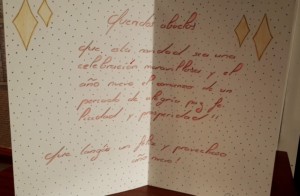 Queridos abuelos
Que, esta navidad sea una
celebración maravillosa y el
año nuevo el comienzo de un
periodo de alegría paz fé
y prosperidad!!
Que, tengáis un feliz y provechoso
año nuevo!